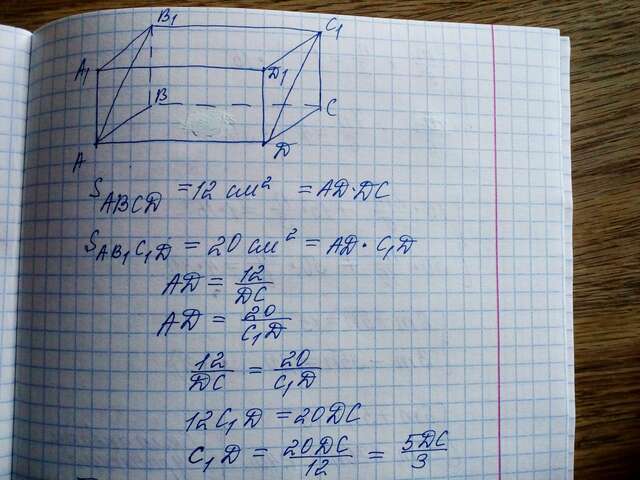 B₁ C₁
A₁ D₁
B C
A D
S_ABCD = 12 см² = AD · DC
S_AB₁C₁D = 20 см² = AD · C₁D
AD = 12/DC
AD = 20/C₁D
12/DC = 20/C₁D
12C₁D = 20DC
C₁D = 20DC/12 = 5DC/3